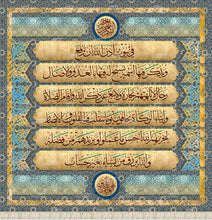 في بيوت أذن الله أن ترفع
ويذكر فيها اسمه يسبح له فيها بالغدو والآصال
رجال لا تلهيهم تجارة ولا بيع عن ذكر الله وإقام الصلاة
وإيتاء الزكاة يخافون يوما تتقلب فيه القلوب والأبصار
ليجزيهم الله أحسن ما عملوا ويزيدهم من فضله
والله يرزق من يشاء بغير حساب